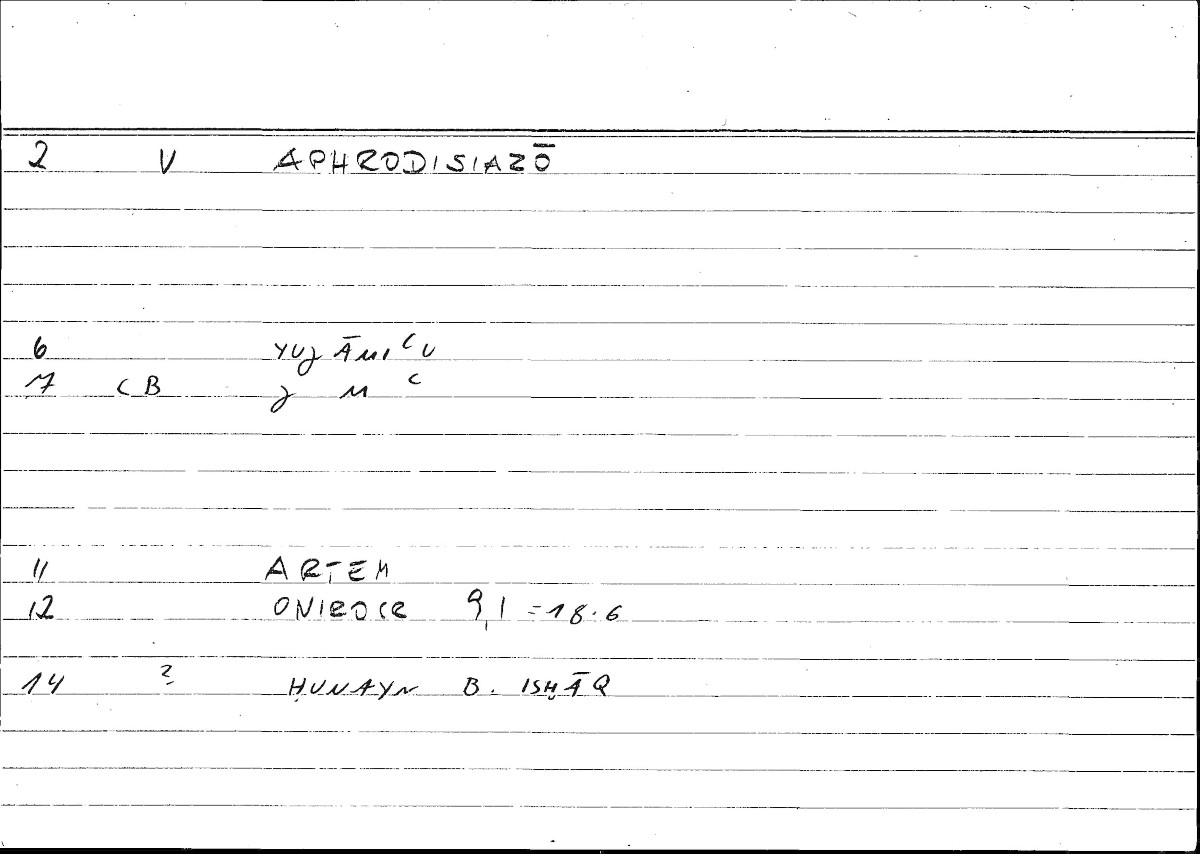 2 V APHRODISIAZŌ
6 YUJĀMIʿU
7 CB J M ʿ
11 ARTEM
12 ONIROCR 9,1 = 18.6
14 ? ḤUNAYN B. ISḤĀQ